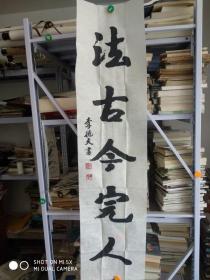 法古今完人
SHOT ON MI 5X
MI DUAL CAMERA